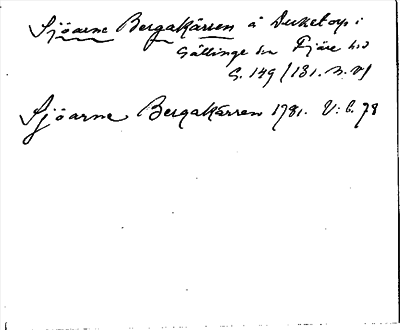 Sjöarne Bergakärren å Duketorp i
Gällinge sn Fjäre hd
S. 149 (131. n. v)
Sjöarne Bergakärren 1781. V: 6. 78